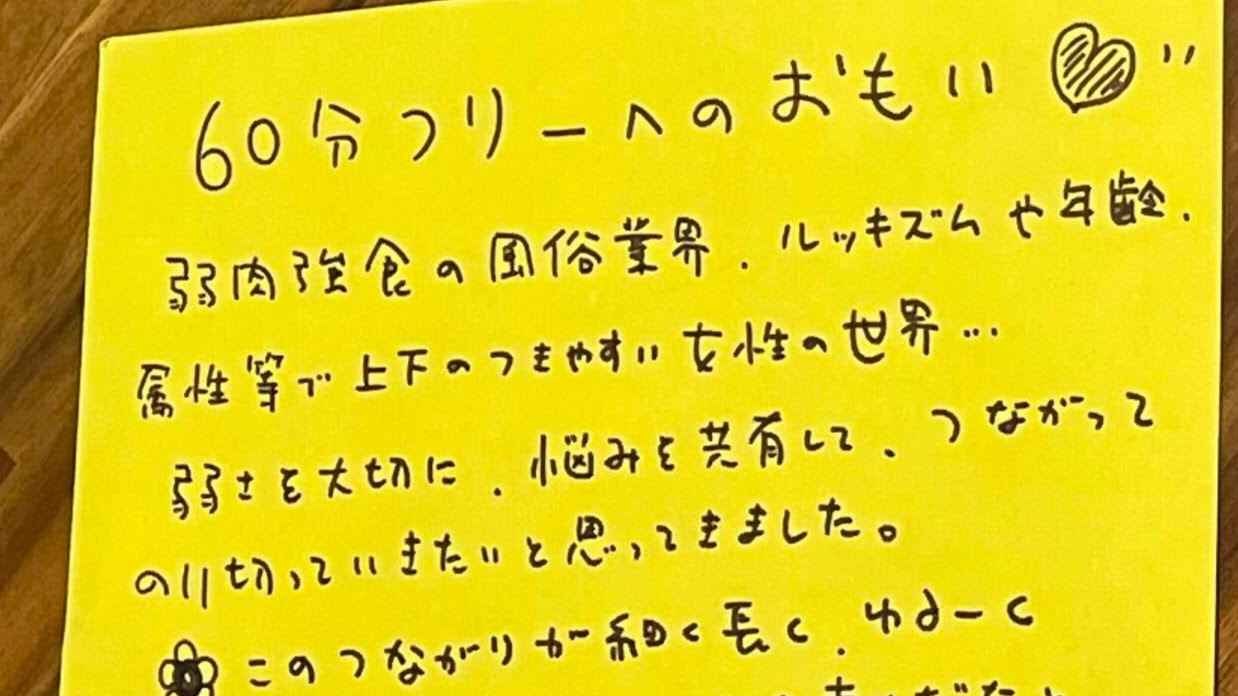 60分フリーへのおもい
弱肉強食の風俗業界、ルッキズムや年齢、
属性等で上下のつきやすい女性の世界…
弱さを大切に、悩みを共有して、つながって
のり切っていきたいと思ってきました。
このつながりが細く長く、ゆるーく